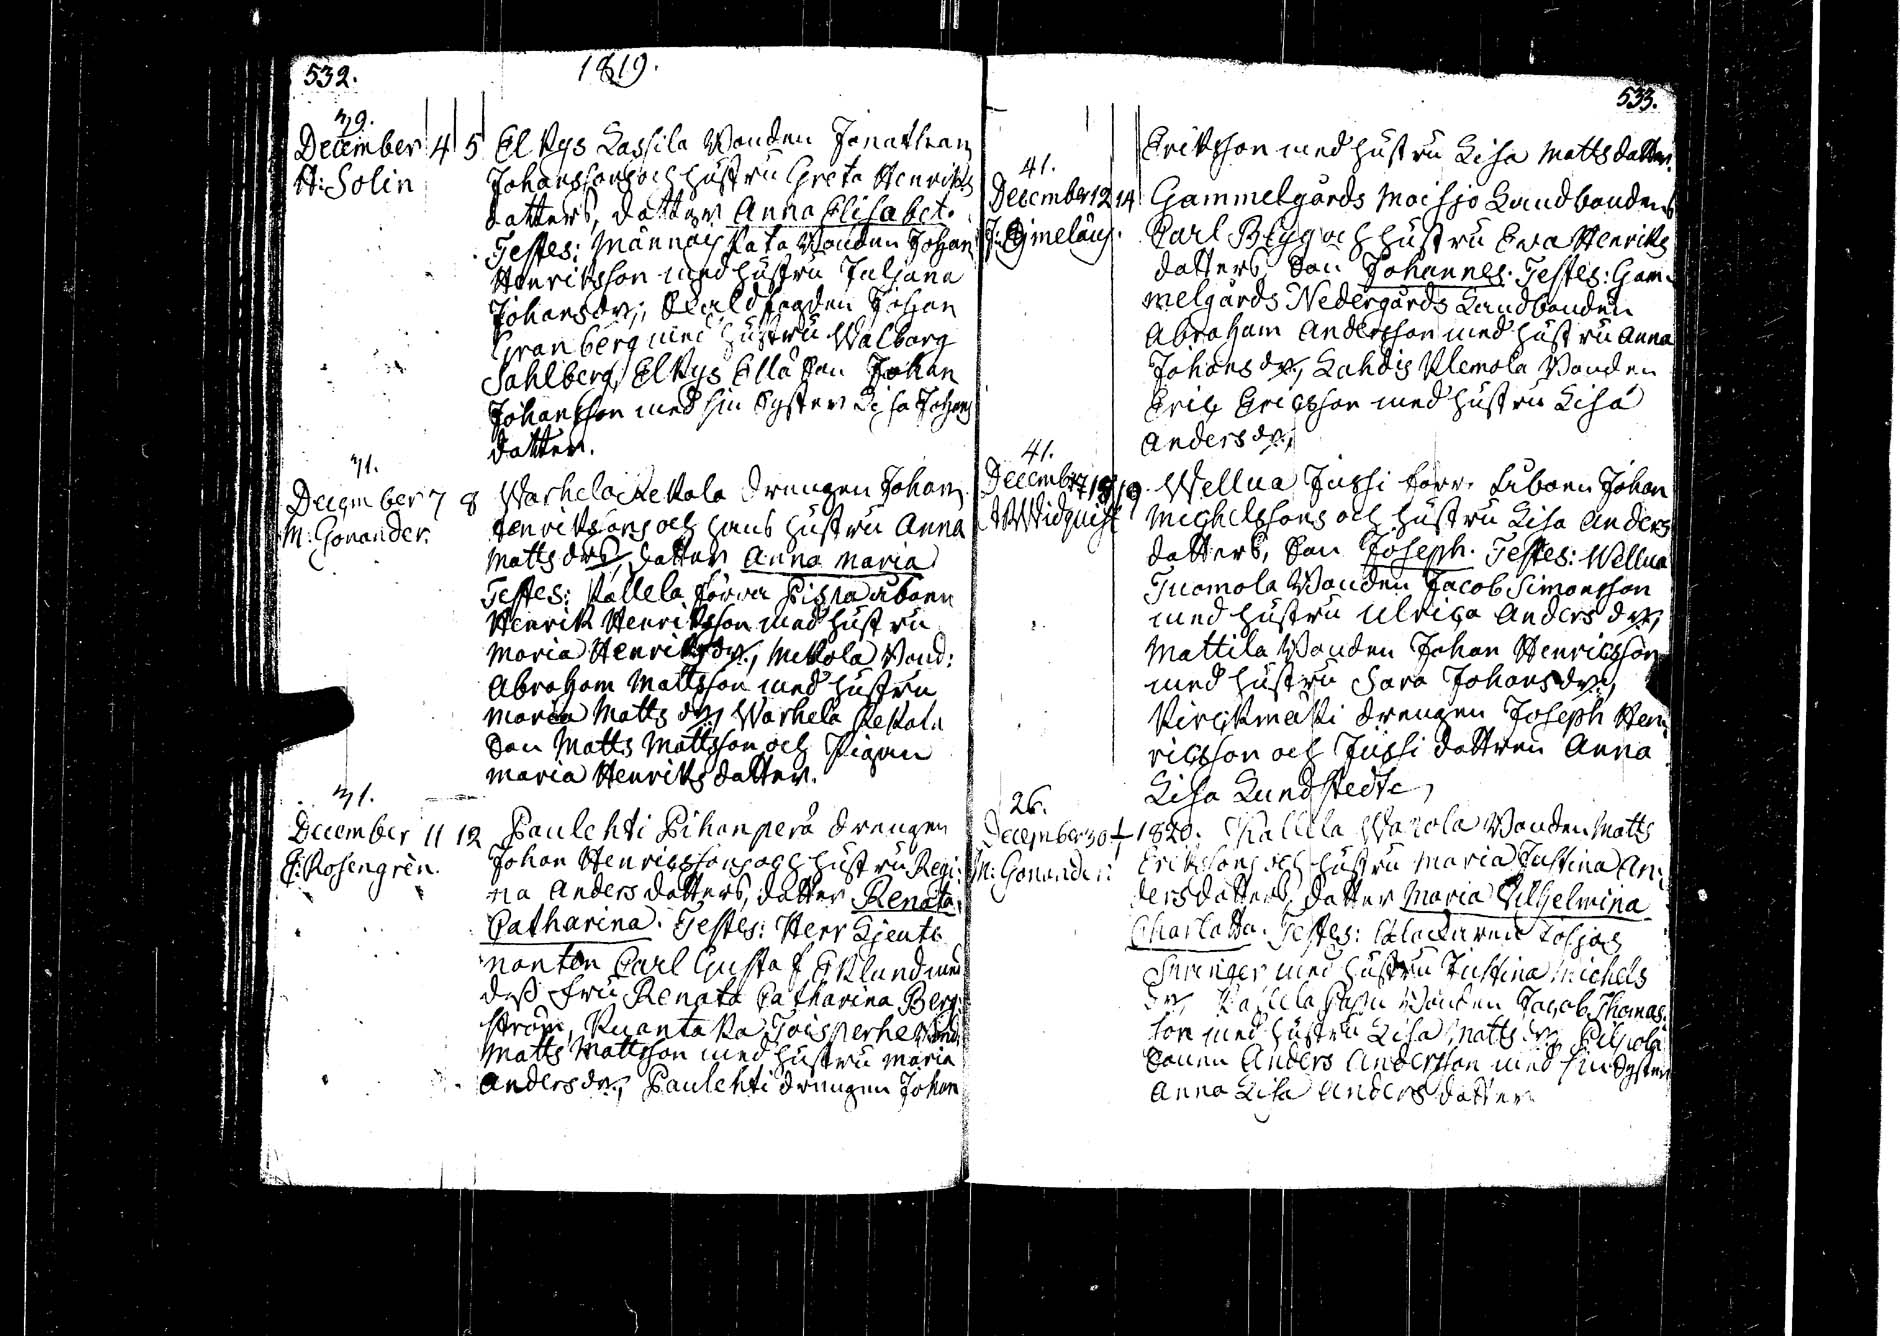 532.
1819.
39.
December 4 5 Elkys Cassila Bonden Jonathan
H: Solin
Johanssons och hustru Greta Henriks
datters, datter Anna Elisabet.
Testes: Männäis Pata Bonden Johan
Henriksson med hustru Juliana
Johansdr,
Granberg med hustru Walborg
Sahlberg, Elkys Ellä Son Johan
Johansson med sin Syster Lisa Johans
datter.
31.
December 7 8 Warhela Kekola Drengen Johan
M: Gonander.
Henrikssons och hans hustru Anna
Mattsdrs, datter Anna Maria
Testes: Kallela förra
Henrik Henriksson med hustru
Maria Henriksdr, Mekola Bond:
Abraham Mattsson med hustru
Maria Mattsdr, Warhela Kekola
Son Matts Mattsson och Pigan
Maria Henriksdatter.
31.
December 11 12 Paulehti Pihanperä Drengen
E: Rosengrèn.
Johan Henricssons och hustru Regi-
na Andersdatters, datter Renata
Catharina. Testes: Herr Lieute
nanten Carl Gustaf Eklund med
dess Fru Renata Catharina Berg
ström,
Matts Mattsson med hustru Maria
Andersdr, Paulehti Drengen Johan
533.
Eriksson med hustru Lisa Mattsdatter.
41.
December 12 14 Gammelgårds Moisjo Landbondens
J: Gimelæus.
Carl Bigg och hustru Eva Henriks
datters, Son Johannes. Testes: Gam-
melgårds Nedergårds Landbonden
Abraham Andersson med hustru Anna
Johansdr, Lahdis Klemola Bonden
Eric Ericsson med hustru Lisa
Andersdr,
41.
December 18 19 Wellua Jussi förr. Åboen Johan
Widquist
Michelssons och hustru Lisa Anders
datters, Son Joseph. Testes: Wellua
Tuomola Bonden Jacob Simonsson
med hustru Ulrica Andersdr,
Mattila Bonden Johan Henricsson
med hustru Sara Johansdr,
Kirckmäki Drengen Joseph Hen
ricsson och Jussi dottren Anna
Lisa Lundstedt,
26.
December 30 1 1820. Kallela Warola Bonden Matts
M: Gonander:
Erikssons och hustru Maria Justina An-
dersdatters, datter Maria Wilhelmina
Charlotta. Testes:
med hustru Justina Michels
dr, Kallela Bonden Jacob Thomas
son med hustru Lisa Mattsdr,
Sonen Anders Andersson med sin Syster
Anna Lisa Andersdatter